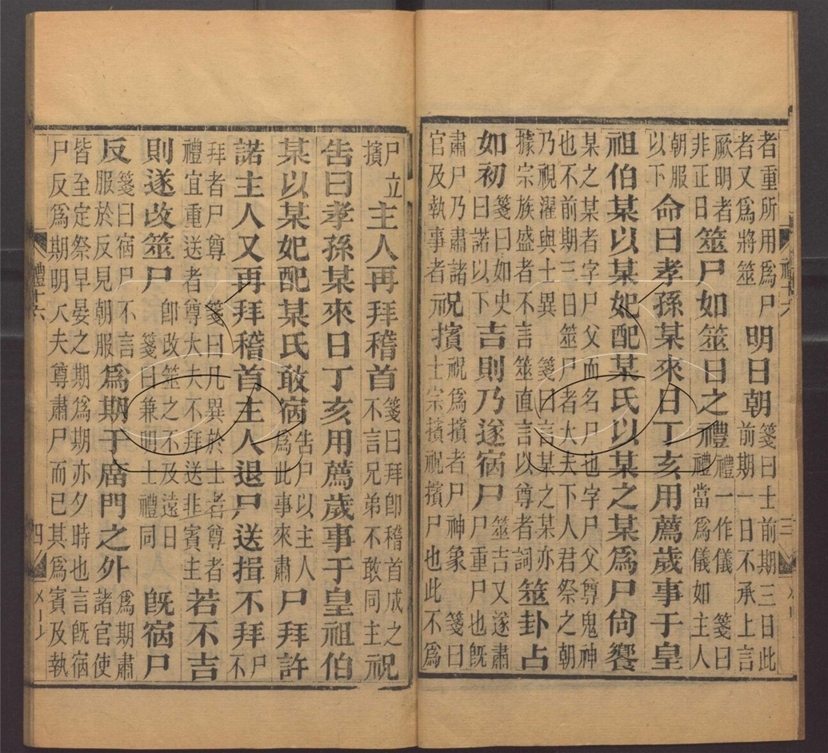 者重所用為尸
者又為將筮
明日朝
箋曰士前期三日此
前期一日不承上言
厥明者
非正日
筮尸如筮日之禮
禮一作儀 箋曰
禮當為儀如主人
朝服
以下
命曰孝孫某來日丁亥用薦歲事于皇
祖伯某以某妃配某氏以某之某為尸尙饗
某之某者字尸父而名尸也字尸父尊鬼神
也不前期三日筮尸者大夫下人君祭之朝
乃視濯與士異 箋曰言某之某亦
據宗族盛者不言筮直言以尊者詞
筮卦占
如初
箋曰如史
曰諾以下
吉則乃遂宿尸
筮吉又遂肅
尸重尸也旣
肅尸乃肅諸
官及執事者
祝擯
祝為擯者尸神象 箋曰
士宗擯祝擯尸也此不為
三
尸立
擯
主人再拜稽首
箋曰拜卽稽首成之
不言兄弟不敢同主
祝
告曰孝孫某來日丁亥用薦歲事于皇祖伯
某以某妃配某氏敢宿
告尸以主人
為此事來肅
尸拜許
諾主人又再拜稽首主人退尸送揖不拜
尸
不
拜者尸尊 箋曰凡異於士者尊者
禮宜重送者尊大夫不拜送非賓主
若不吉
則遂改筮尸
卽改筮之不及遠日
箋曰兼明士禮同
旣宿尸
反
箋曰宿尸不言
服於反見朝服
為期于廟門之外
為期肅
諸官使
皆至定祭早晏之期為期亦夕時也言旣宿
尸反為期明大夫尊肅尸而已其為賓及執
禮十六
四